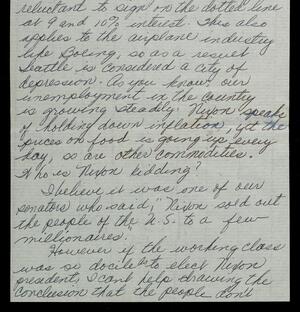 reluctant to sign on the dotted line
at 9 and 10% interest. This also
applies to the airplane industry
like Boeing, so as a result
Seattle is considered a city of
depression. As you know our
unemployment in the country
is growing steadily. Nixon speaks
of holding down inflation, yet the
prices on food is going up every
day, so are other commodities.
Who is Nixon kidding?
I believe it was one of our
senators who said, "Nixon sold out
the people of the U.S. to a few
millionaires."
However if the working class
was so docile to elect Nixon
president, I can't help drawing the
conclusion that the people don't